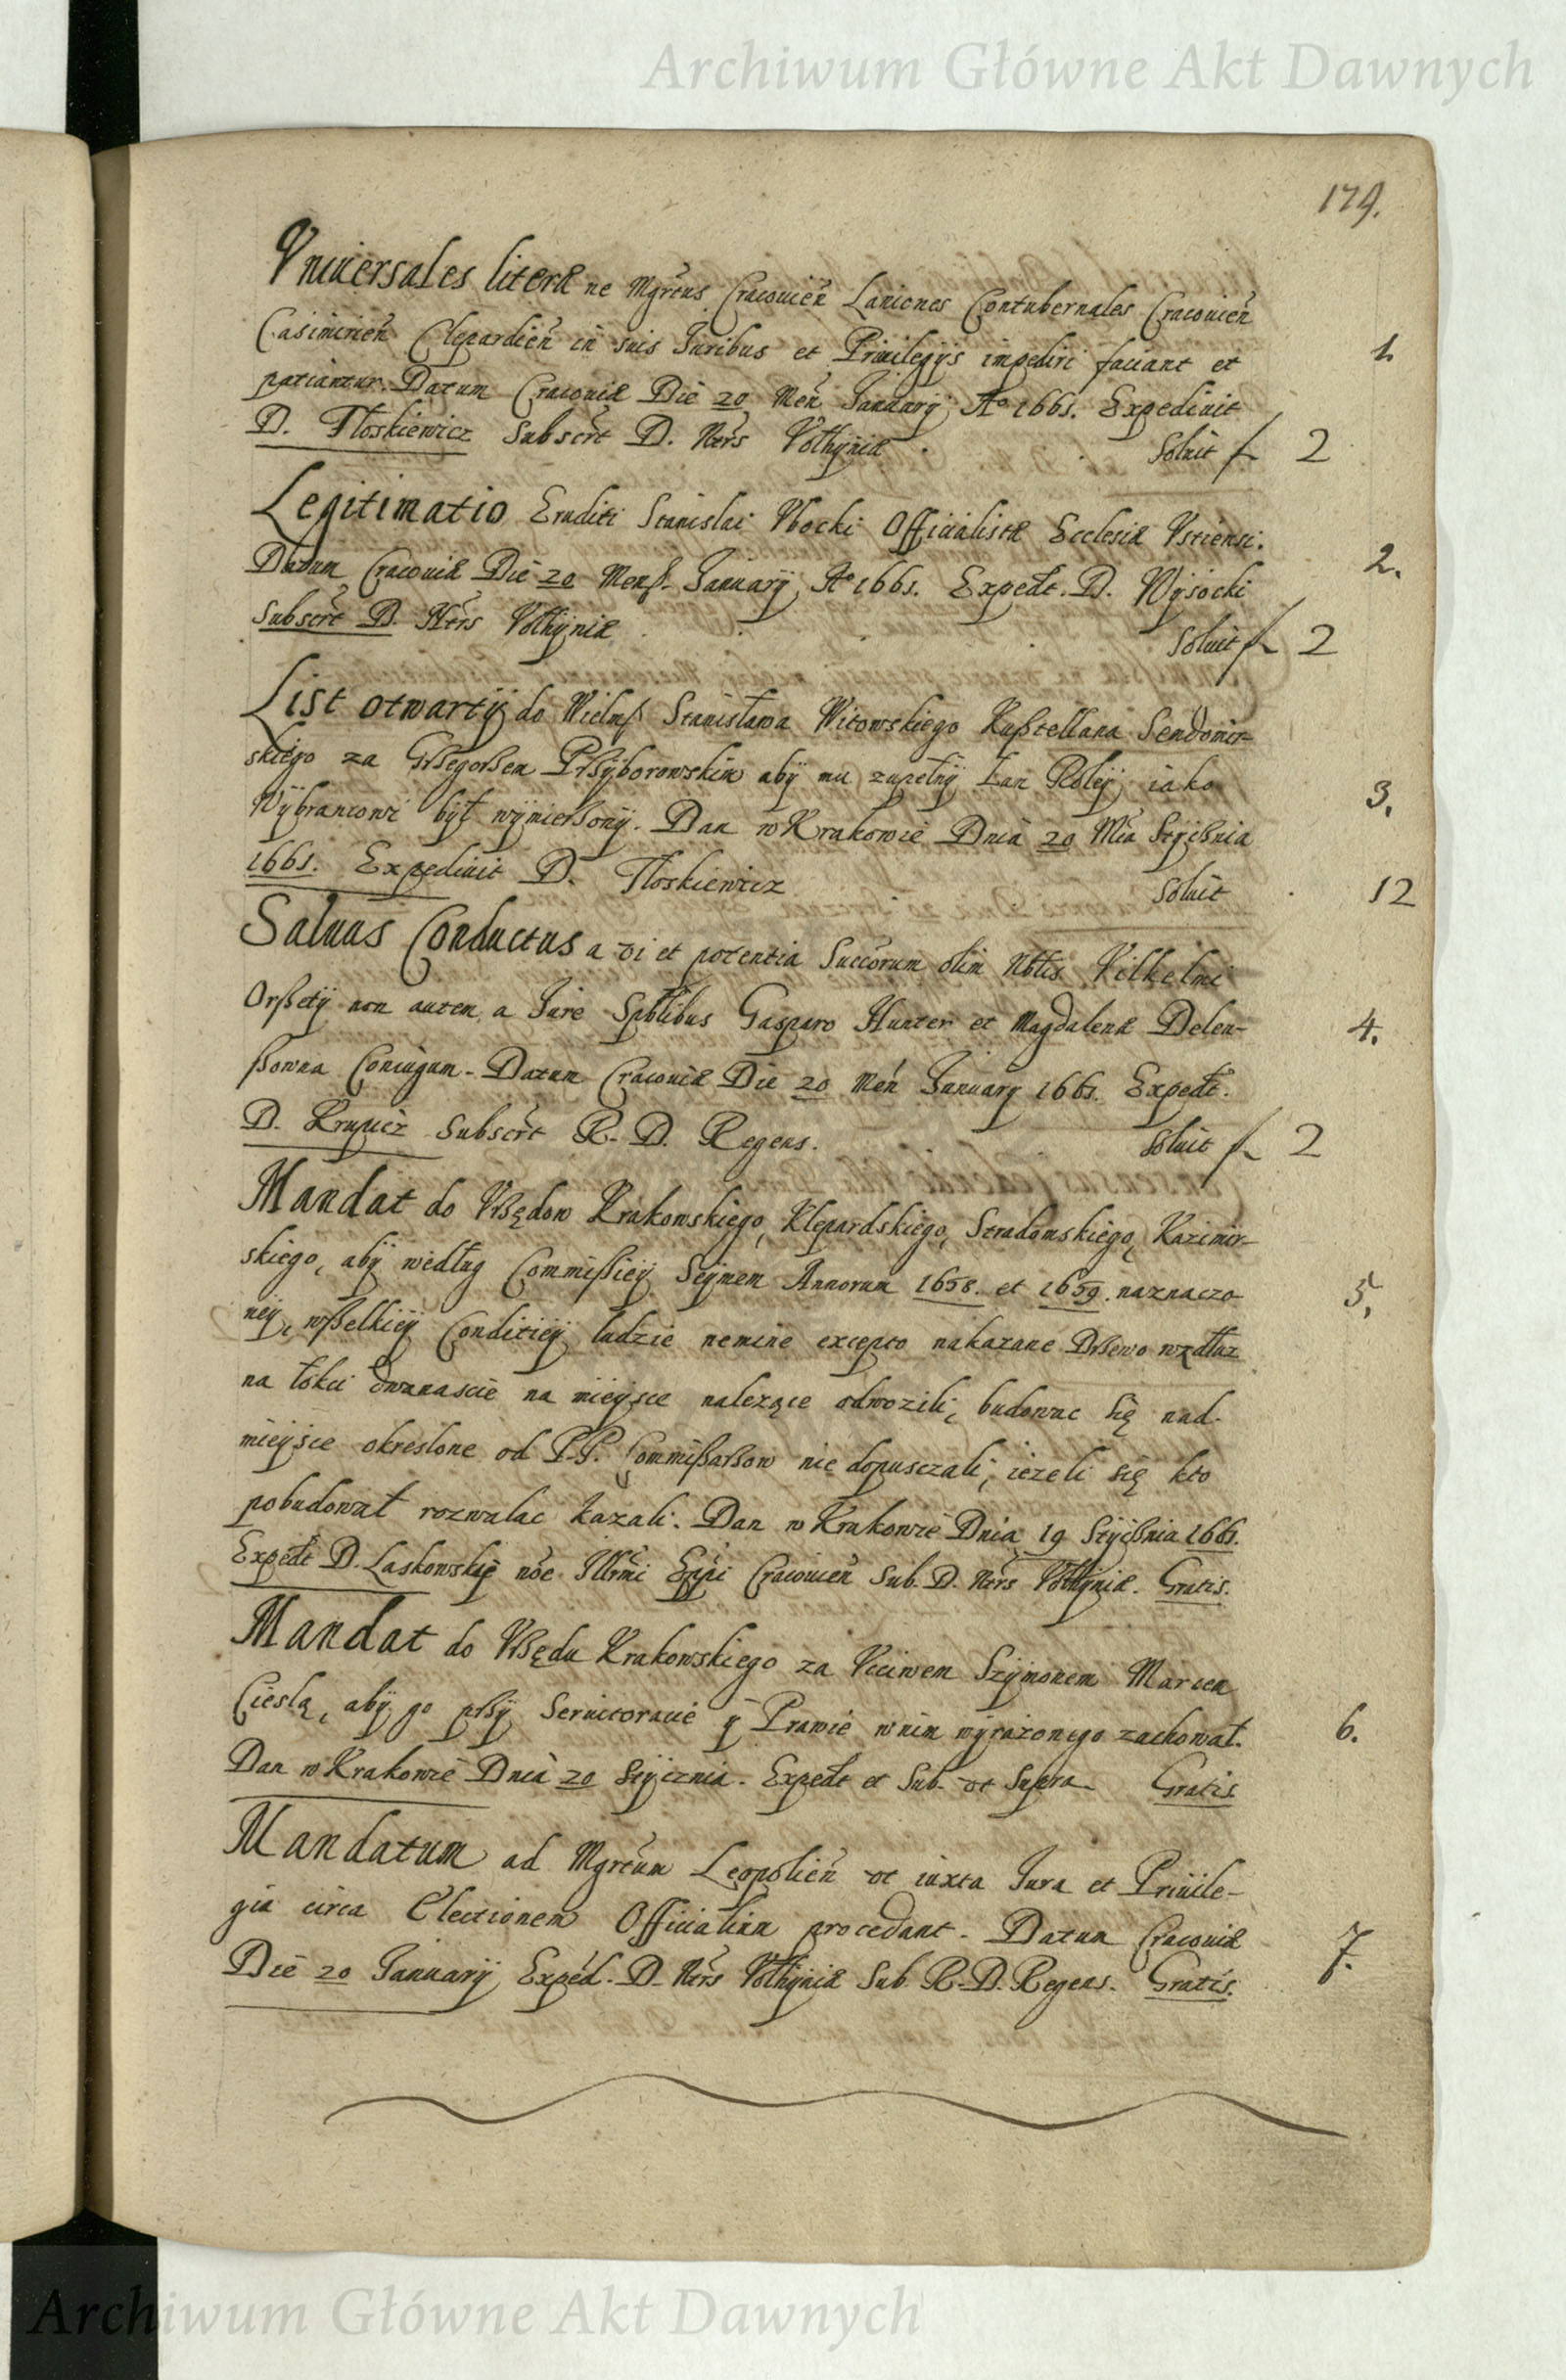 Archiwum Główne Akt Dawnych
179.
Vniuersales literæ ne Mgrtus Cracouien̄ Laniones Contubernales Cracouien̄
Casimirien̄ Clepardien̄ in suis Iuribus et Priuilegijs impediri faciant et
patiantur. Datum Cracouiæ Die 20 Men̄ Ianuarij A° 1661. Expediuit
1.
D. Tłoskiewicz Subscrt D. Ntrs Vołhyniæ. Soluit f 2
Legitimatio Eruditi Stanislai Vbocki Officialistæ Ecclesiæ Vstiensi.
Datum Cracouiæ Die 20 Mens. Ianuarij A° 1661. Expedt. D. Wysocki
2.
Subscrt D. Ntrs Vołhyniæ Soluit f 2
List otwartÿ do Wielmß Stanisława Witowskiego Kasztellana Sendomir-
skiego za Grßegorßem Prßÿborowskim abÿ mu zupełnÿ Łan Roley iako
Wÿbrancowi bÿł wÿmierßonÿ. Dan w Krakowie Dnia 20 Mca Stÿcznia
3.
1661. Expediuit D. Tłoskiewicz Soluit 12
Saluus Conductus a vi et potentia Succorum olim Nblis Vilhelmi
Orßetÿ non autem a Iure Spblibus Gasparo Hunter et Magdalenæ Delen-
4.
ßowna Coniugum. Datum Cracouiæ Die 20 Men̄ Ianuarij 1661. Expedt.
D. Krupicz Subscrt R. D. Regens. Soluit f 2
Mandat do Vrßędow Krakowskiego, Klepardskiego, Stradomskiego, Kazimir-
skiego, abÿ według Commißiey Seÿmem Annorum 1658. et 1659. naznaczo
5.
neÿ, wßelkieÿ Conditieÿ ludzie nemine excepto nakazane Drßewo wzdłuz
na łokci dwanascie na mieÿsce nalezące odwozili, budowac się nad
mieÿsce okreslone od P.P. Commißarßow nie dopusczali, iezeli się kto
pobudował rozwalac kazali. Dan w Krakowie Dnia 19 Stÿcznia 1661.
Expedt D. Laskowskÿ noe Illrmi Eppi Cracouien̄ Sub. D. Ntrs Vołhyniæ. Gratis.
Mandat do Vrßędu Krakowskiego za Vcciwem Szÿmonem Marcem
Cieslą, abÿ go prßÿ Seruitoracie ÿ Prawie w nim wÿrazonego zachował.
6.
Dan w Krakowie Dnia 20 Stÿcznia. Expedt et Sub. vt Supra. Gratis
Mandatum ad Mgrtum Leopolien̄ vt iuxta Iura et Priuile-
gia circa Electionem Officialium procedant. Datum Cracouiæ
7.
Die 20 Ianuarij Exped. D. Ntrs Vołhyniæ Sub. R. D. Regens. Gratis.
Archiwum Główne Akt Dawnych